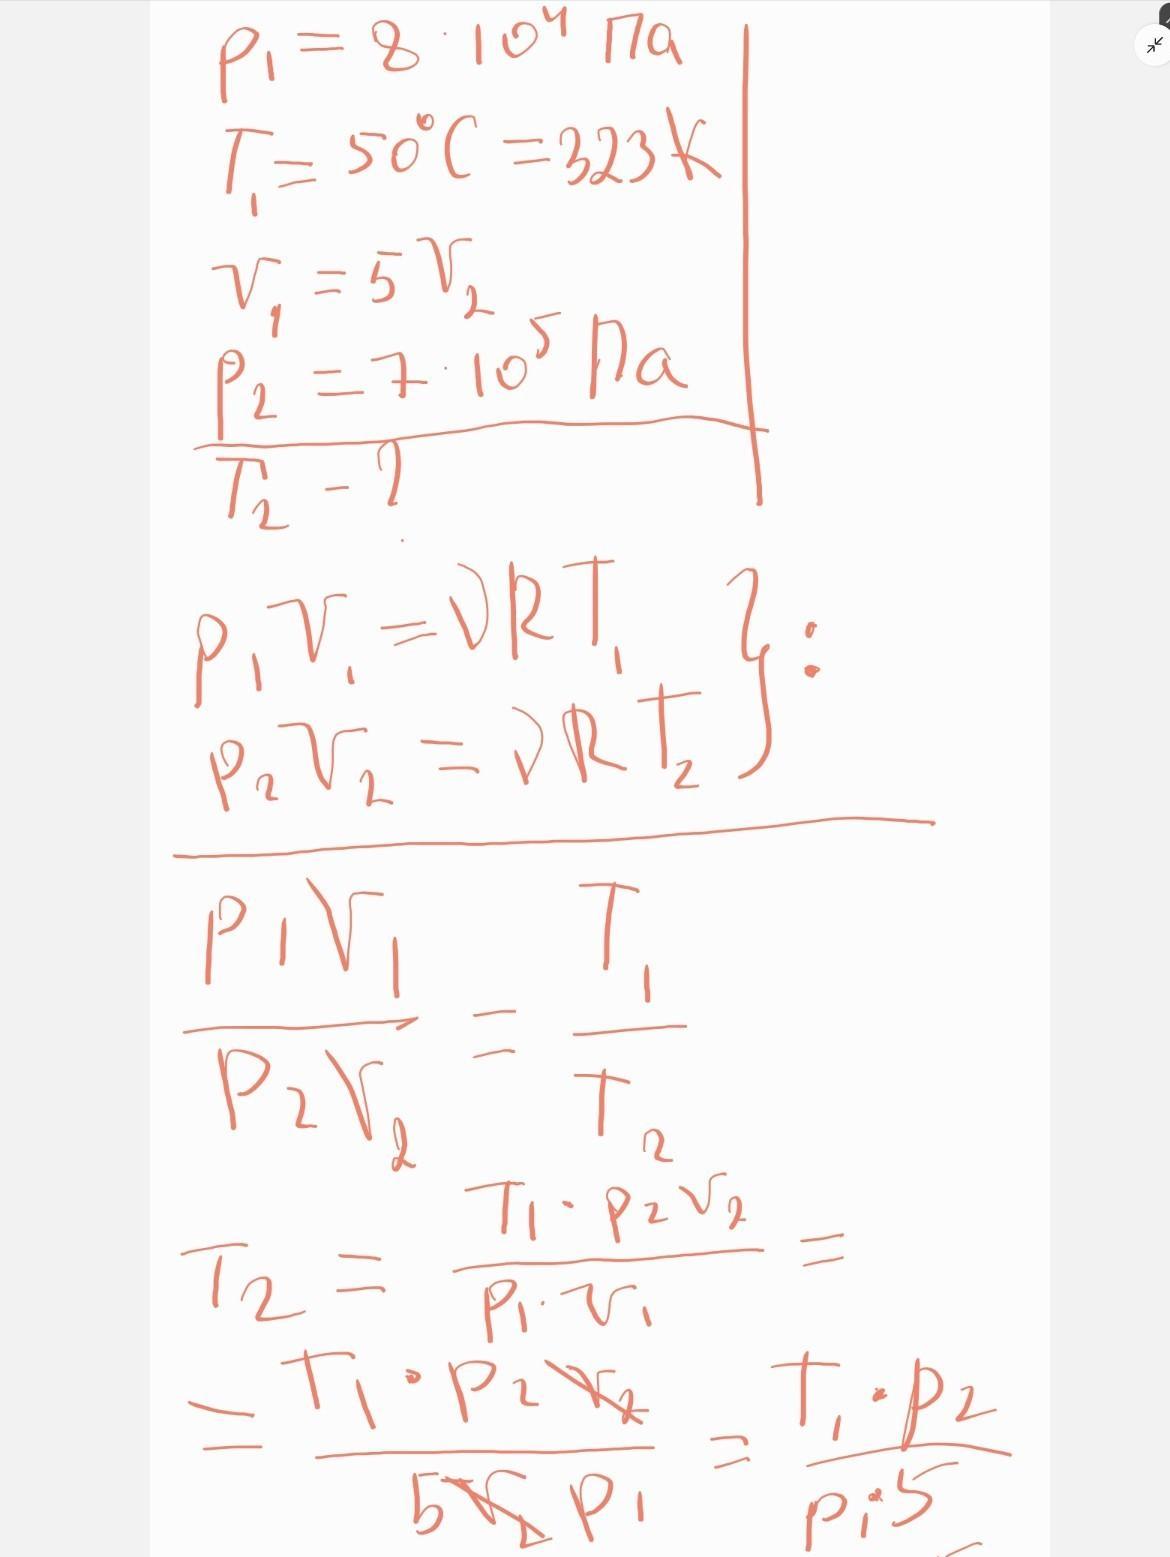 p₁ = 8 · 10⁴ Па
T₁ = 50°C = 323 K
V₁ = 5 V₂
p₂ = 7 · 10⁵ Па
T₂ - ?
p₁ V₁ = νRT₁ } :
p₂ V₂ = νRT₂
p₁V₁ / p₂V₂ = T₁ / T₂
T₂ = T₁ · p₂V₂ / p₁ · V₁ =
= T₁ · p₂V₂ / 5V₂ p₁ = T₁ · p₂ / p₁ · 5